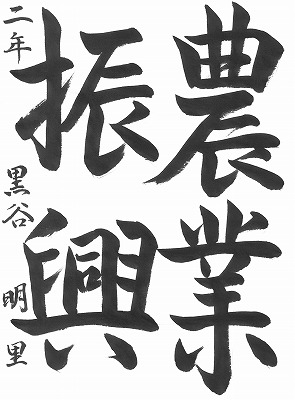 農業
振興
二年 黒谷 明里